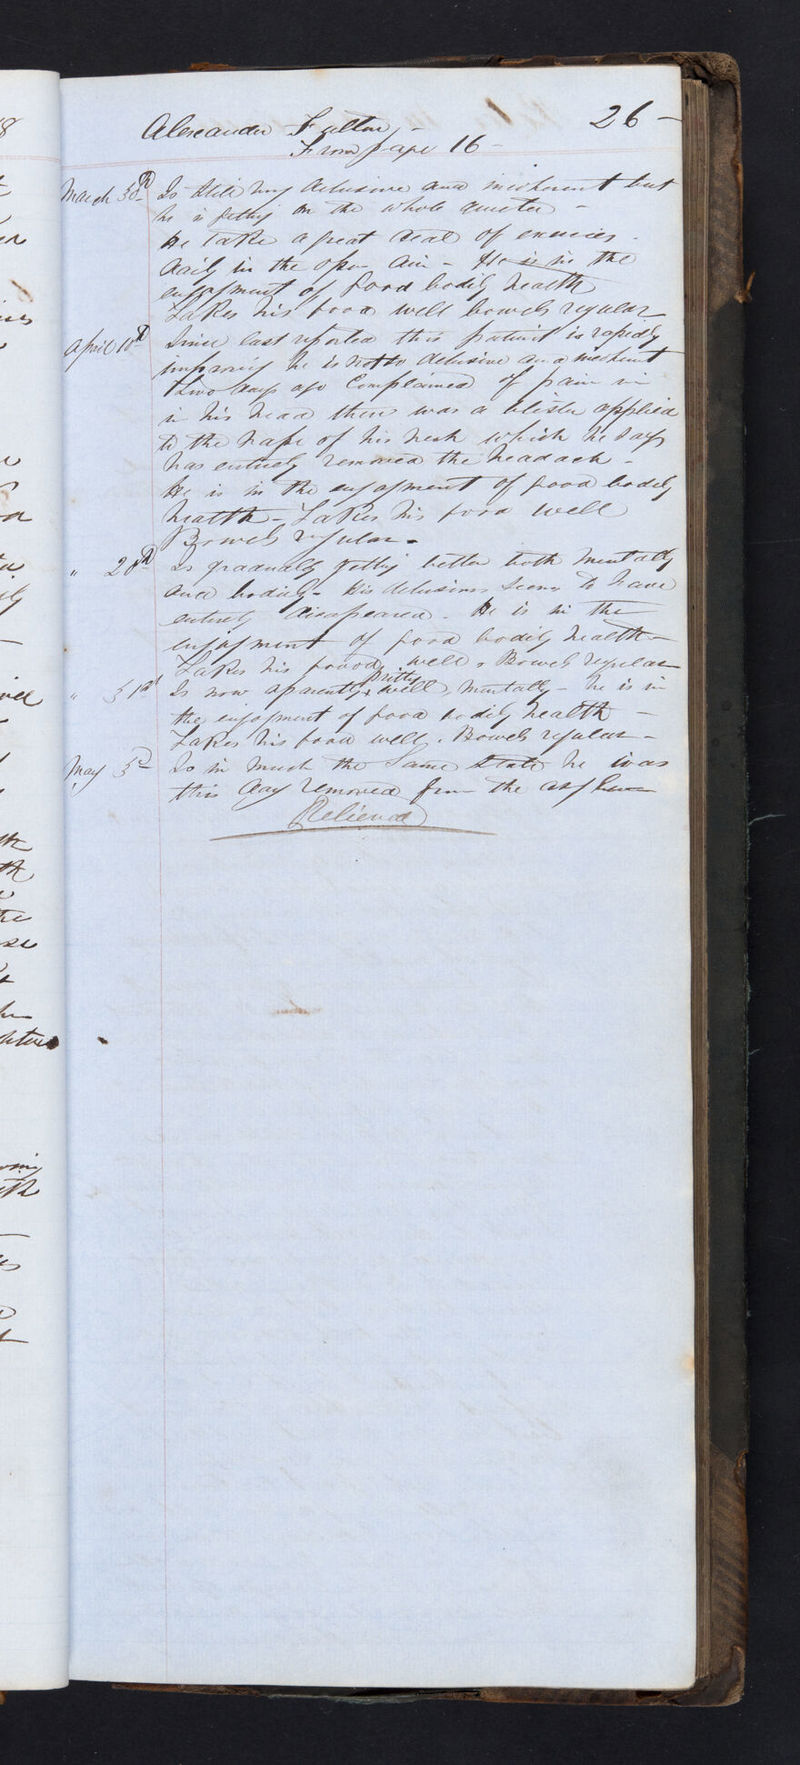 26 -
Alexander Fulton -
From page 16 -
March 30th Is still very delusive and incoherent but
he is getting on the whole quieter -
He take a great deal of exercise
daily in the open air - He is in the
enjoyment of good bodily health
Takes his food well bowels regular
April 10th Since last reported this patient is rapidly
improving he is not so delusive and incoherent
two days ago complained of pain in
in his head there was a blister applied
to the nape of his neck which he says
has entirely removed the headach -
He is in the enjoyment of good bodily
health - Takes his food well
Bowels regular -
" 20th Is gradually getting better both mentally
and bodily - His delusions seems to have
entirely disapeared - He is in the
enjoyment of good bodily health -
Takes his food well & Bowels regular
" 31st Is now aparently pritty well mentally - he is in
the enjoyment of good bodily health -
Takes his food well . Bowels regular -
May 3d Is in much the same state he was
this day removed from the asylum
Relieved